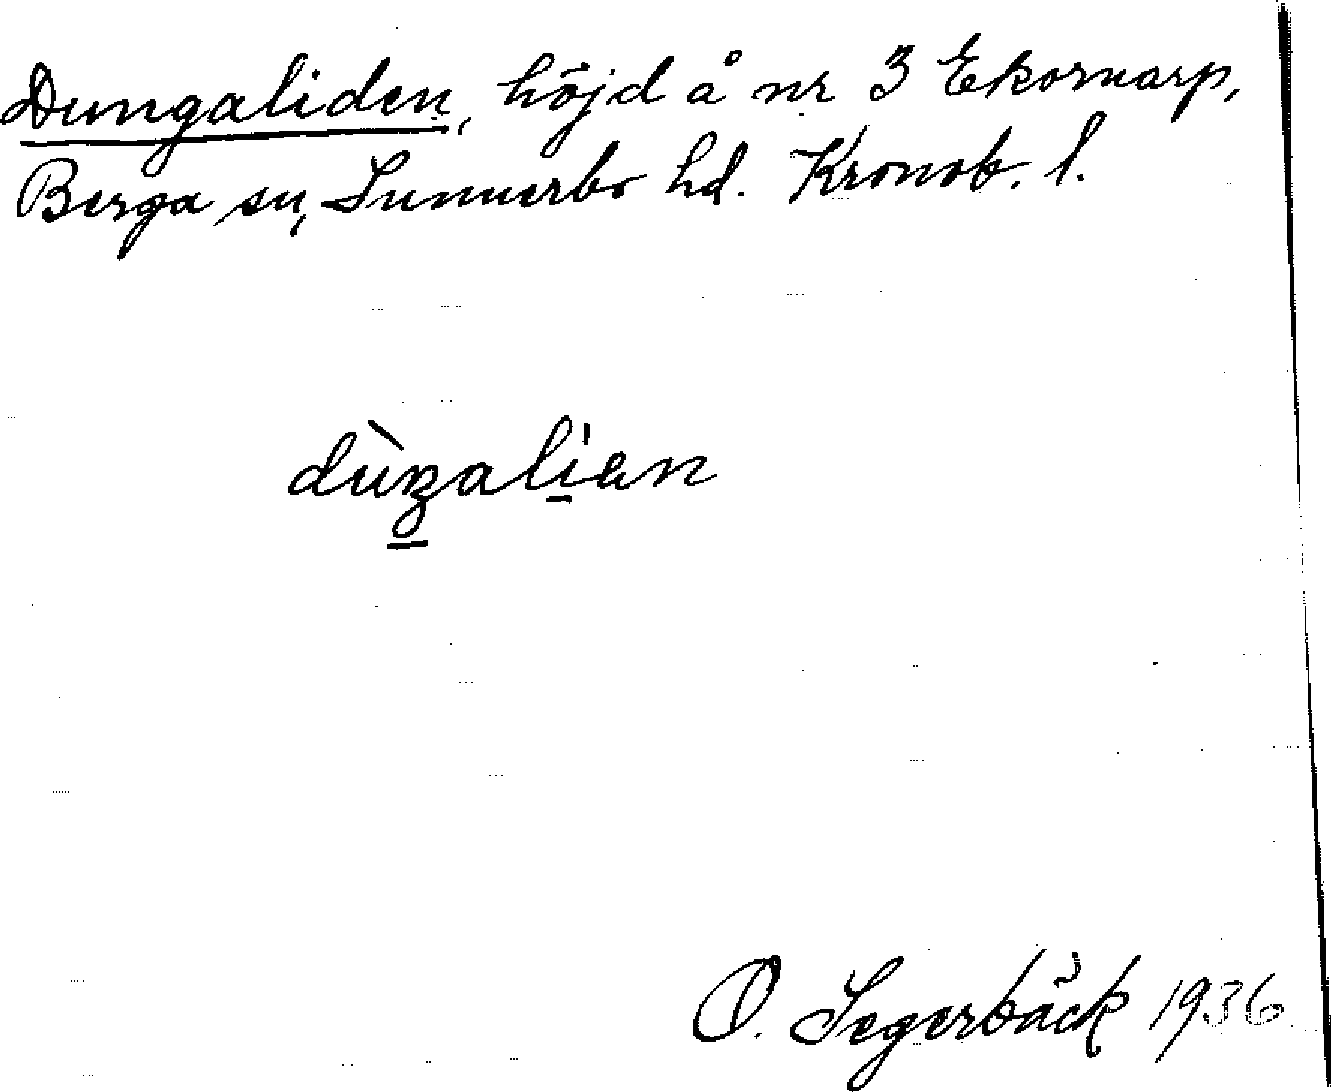 Dungaliden, höjd å nr 3 Ekornarp,
Berga sn, Sunnerbo hd. Kronob. l.
dùŋalian
O. Segerbäck 1936